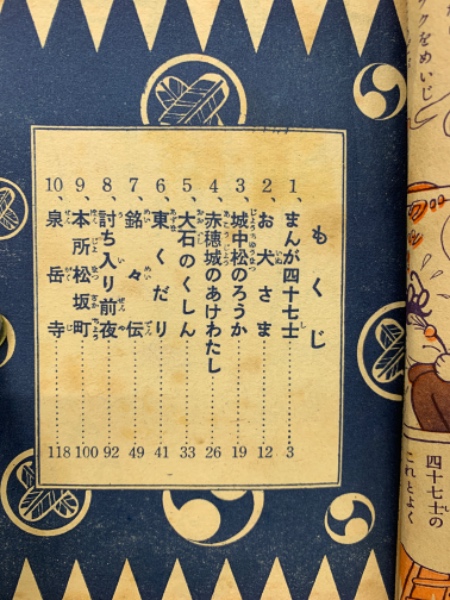 もくじ
1、まんが四十七士……3
2、お犬さま……12
3、城中松のろうか……19
4、赤穂城のあけわたし……26
5、大石のくしん……33
6、東くだり……41
7、銘々伝……49
8、討ち入り前夜……92
9、本所松坂町……100
10、泉岳寺……118
ックをめいじ
四十七士の
これとよく